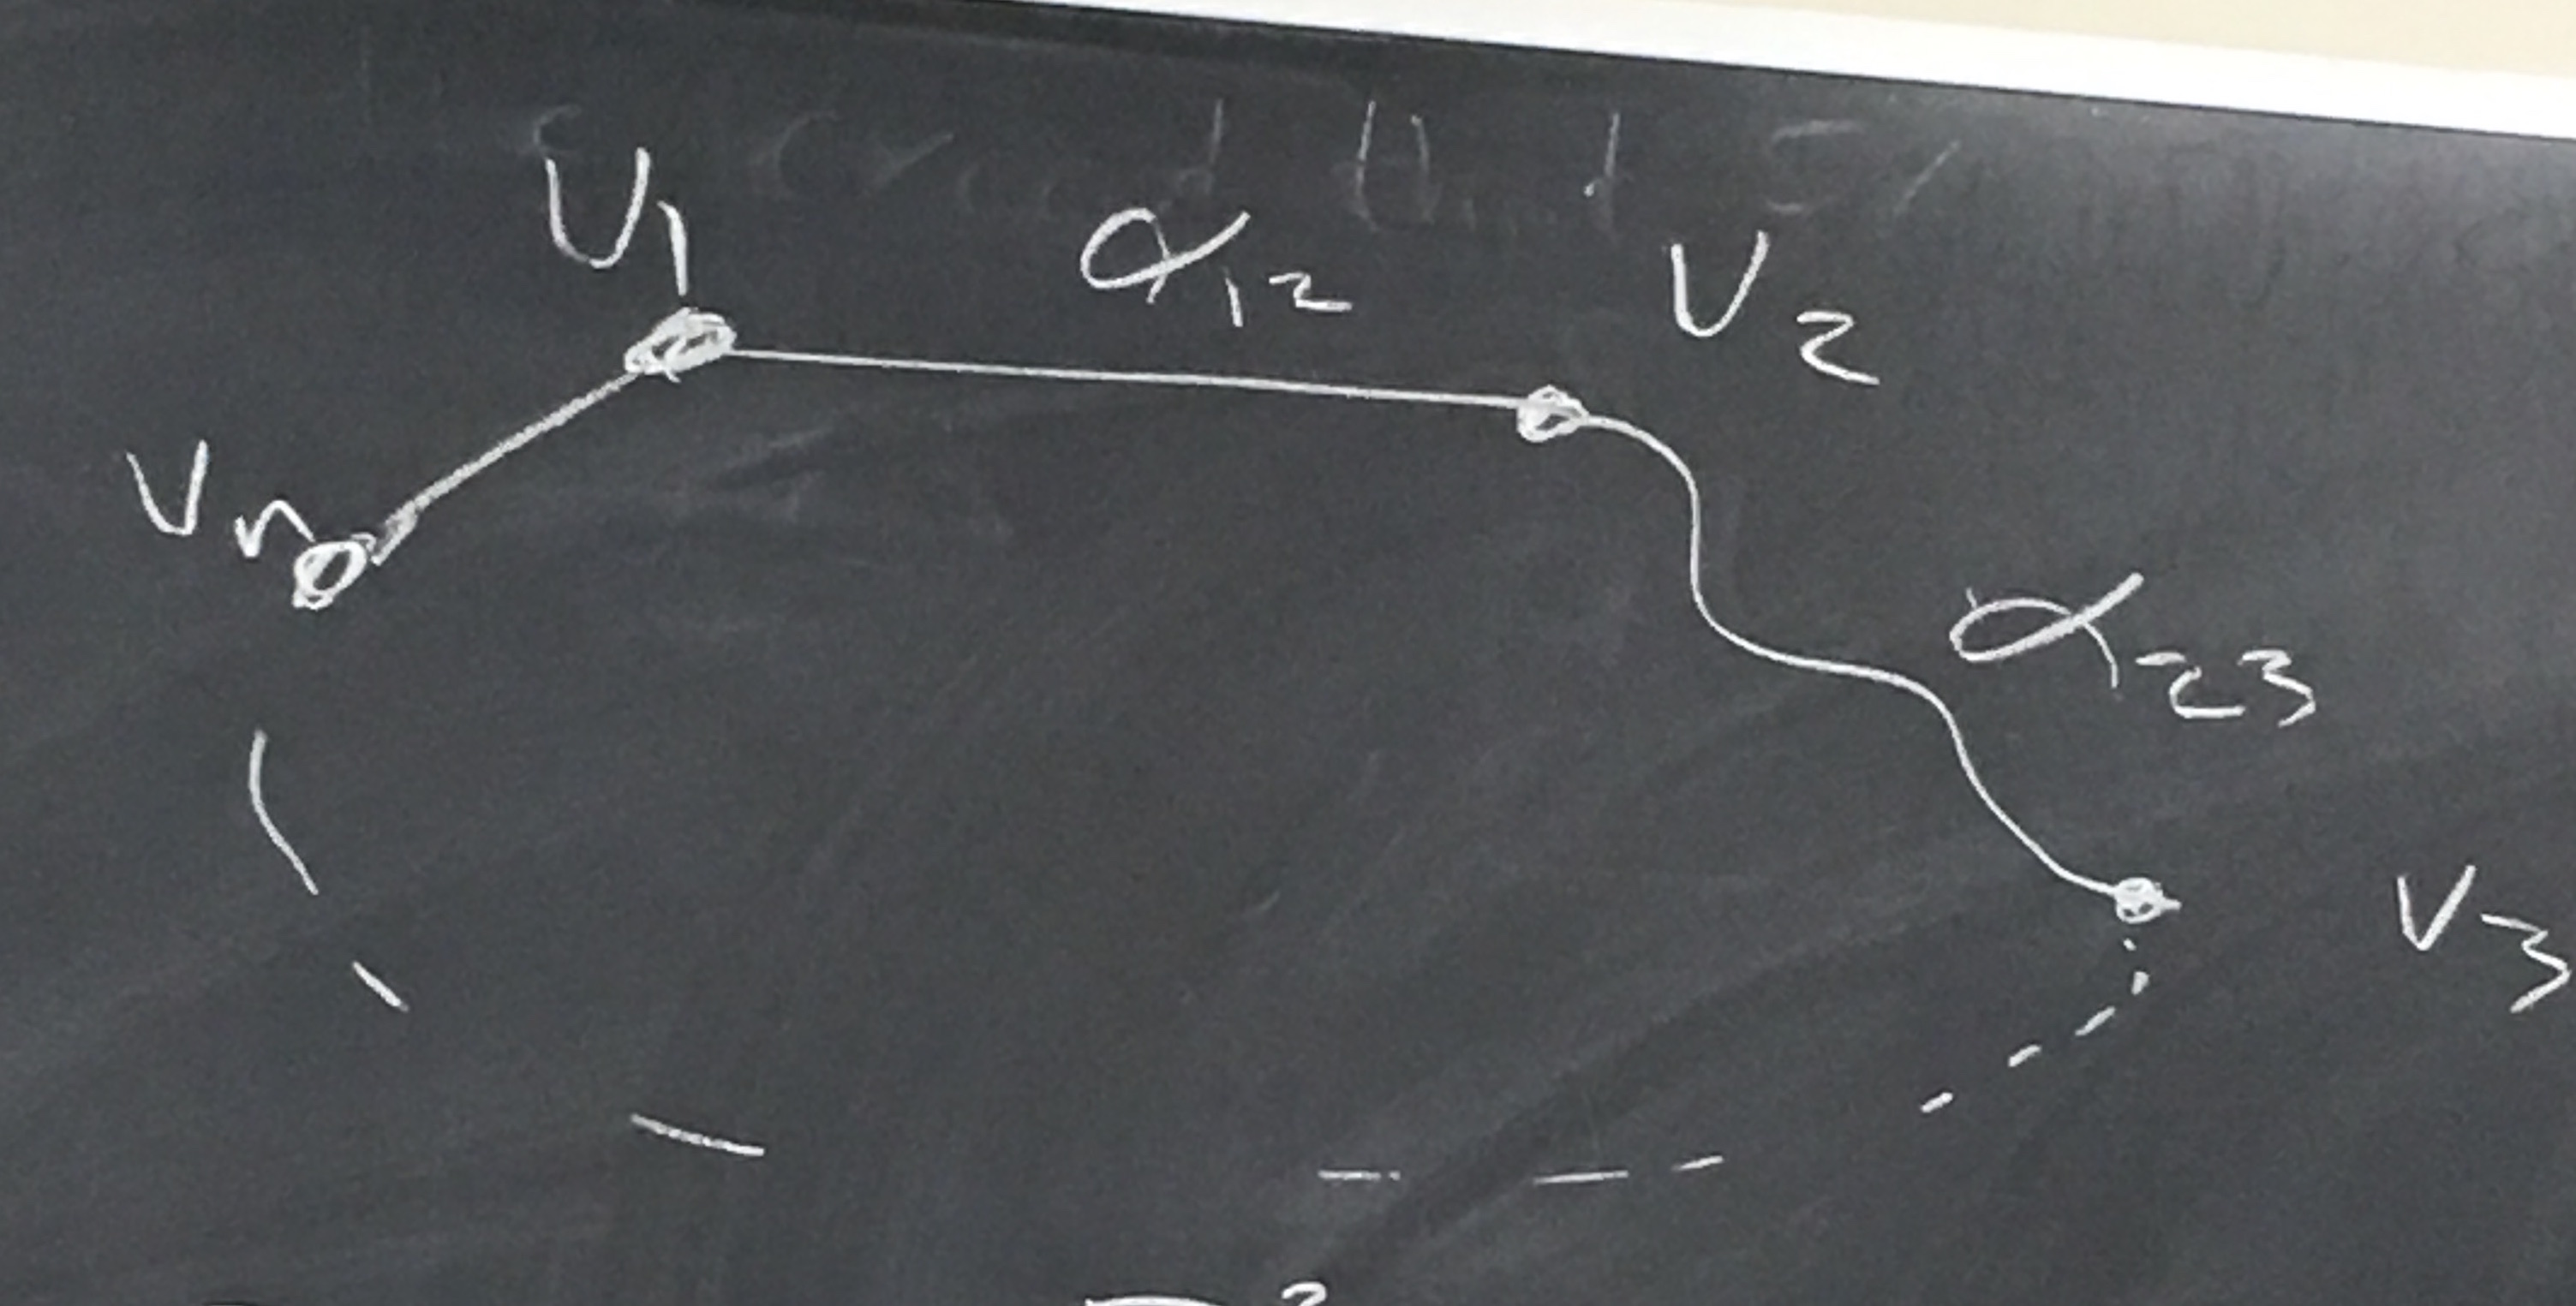 V₁
α₁₂
V₂
Vₙ
α₂₃
V₃